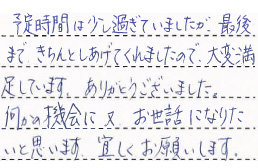 予定時間は少し過ぎていましたが、最後
まで、きちんとしあげてくれましたので、大変満
足しています。ありがとうございました。
何かの機会に又、お世話になりた
いと思います。宜しくお願いします。